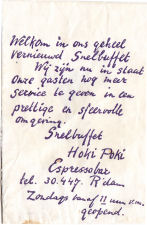 Welkom in ons geheel
vernieuwd Snelbuffet
Wij zijn nu in staat
onze gasten nog meer
service te geven in een
prettige en sfeervolle
omgeving.
Snelbuffet
Hoki Poki
Espressobar
tel. 30.447. R'dam
Zondags vanaf 11 uur v.m.
geopend.